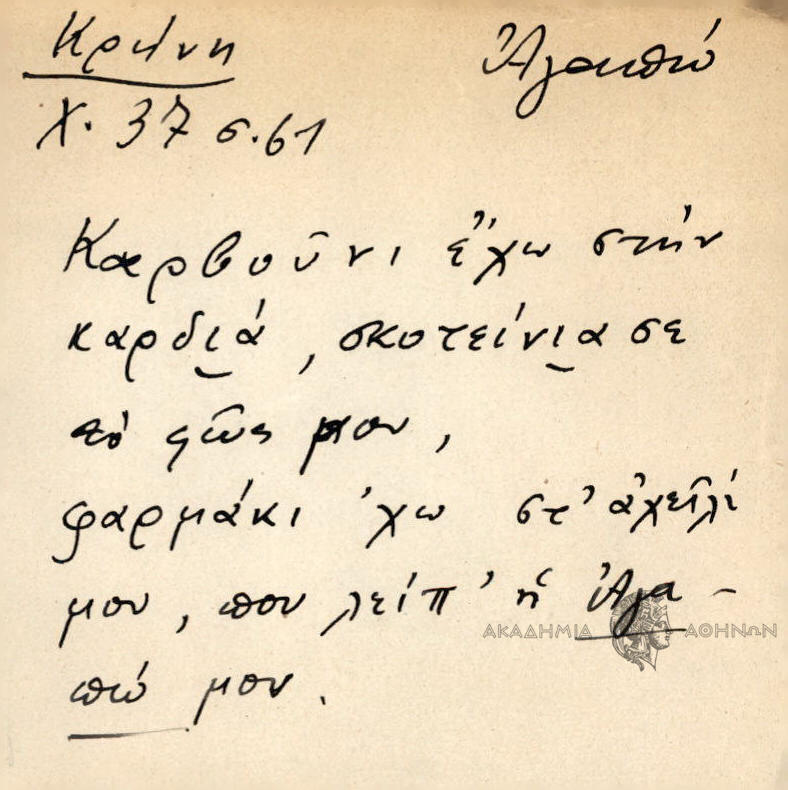 Κρήνη
Ἀγαπώ
Χ. 37 σ. 61
Καρβοῦνι ἔχω στήν
καρδιά, σκοτείνιασε
τό φῶς μου,
φαρμάκι 'χω στ' ἀχεῖλί
μου, που λείπ' ἡ Ἀγα-
πώ μου.
ΑΚΑΔΗΜΙΑ ΑΘΗΝΩΝ